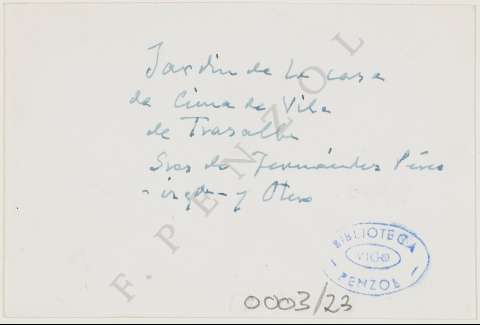 Jardin de la casa
de Cima de Vila
de Trasalba
Sres de Fernández Pérez
- izqda - y Otero
F. PENZOL
BIBLIOTECA
VIGO
PENZOL
0003/23